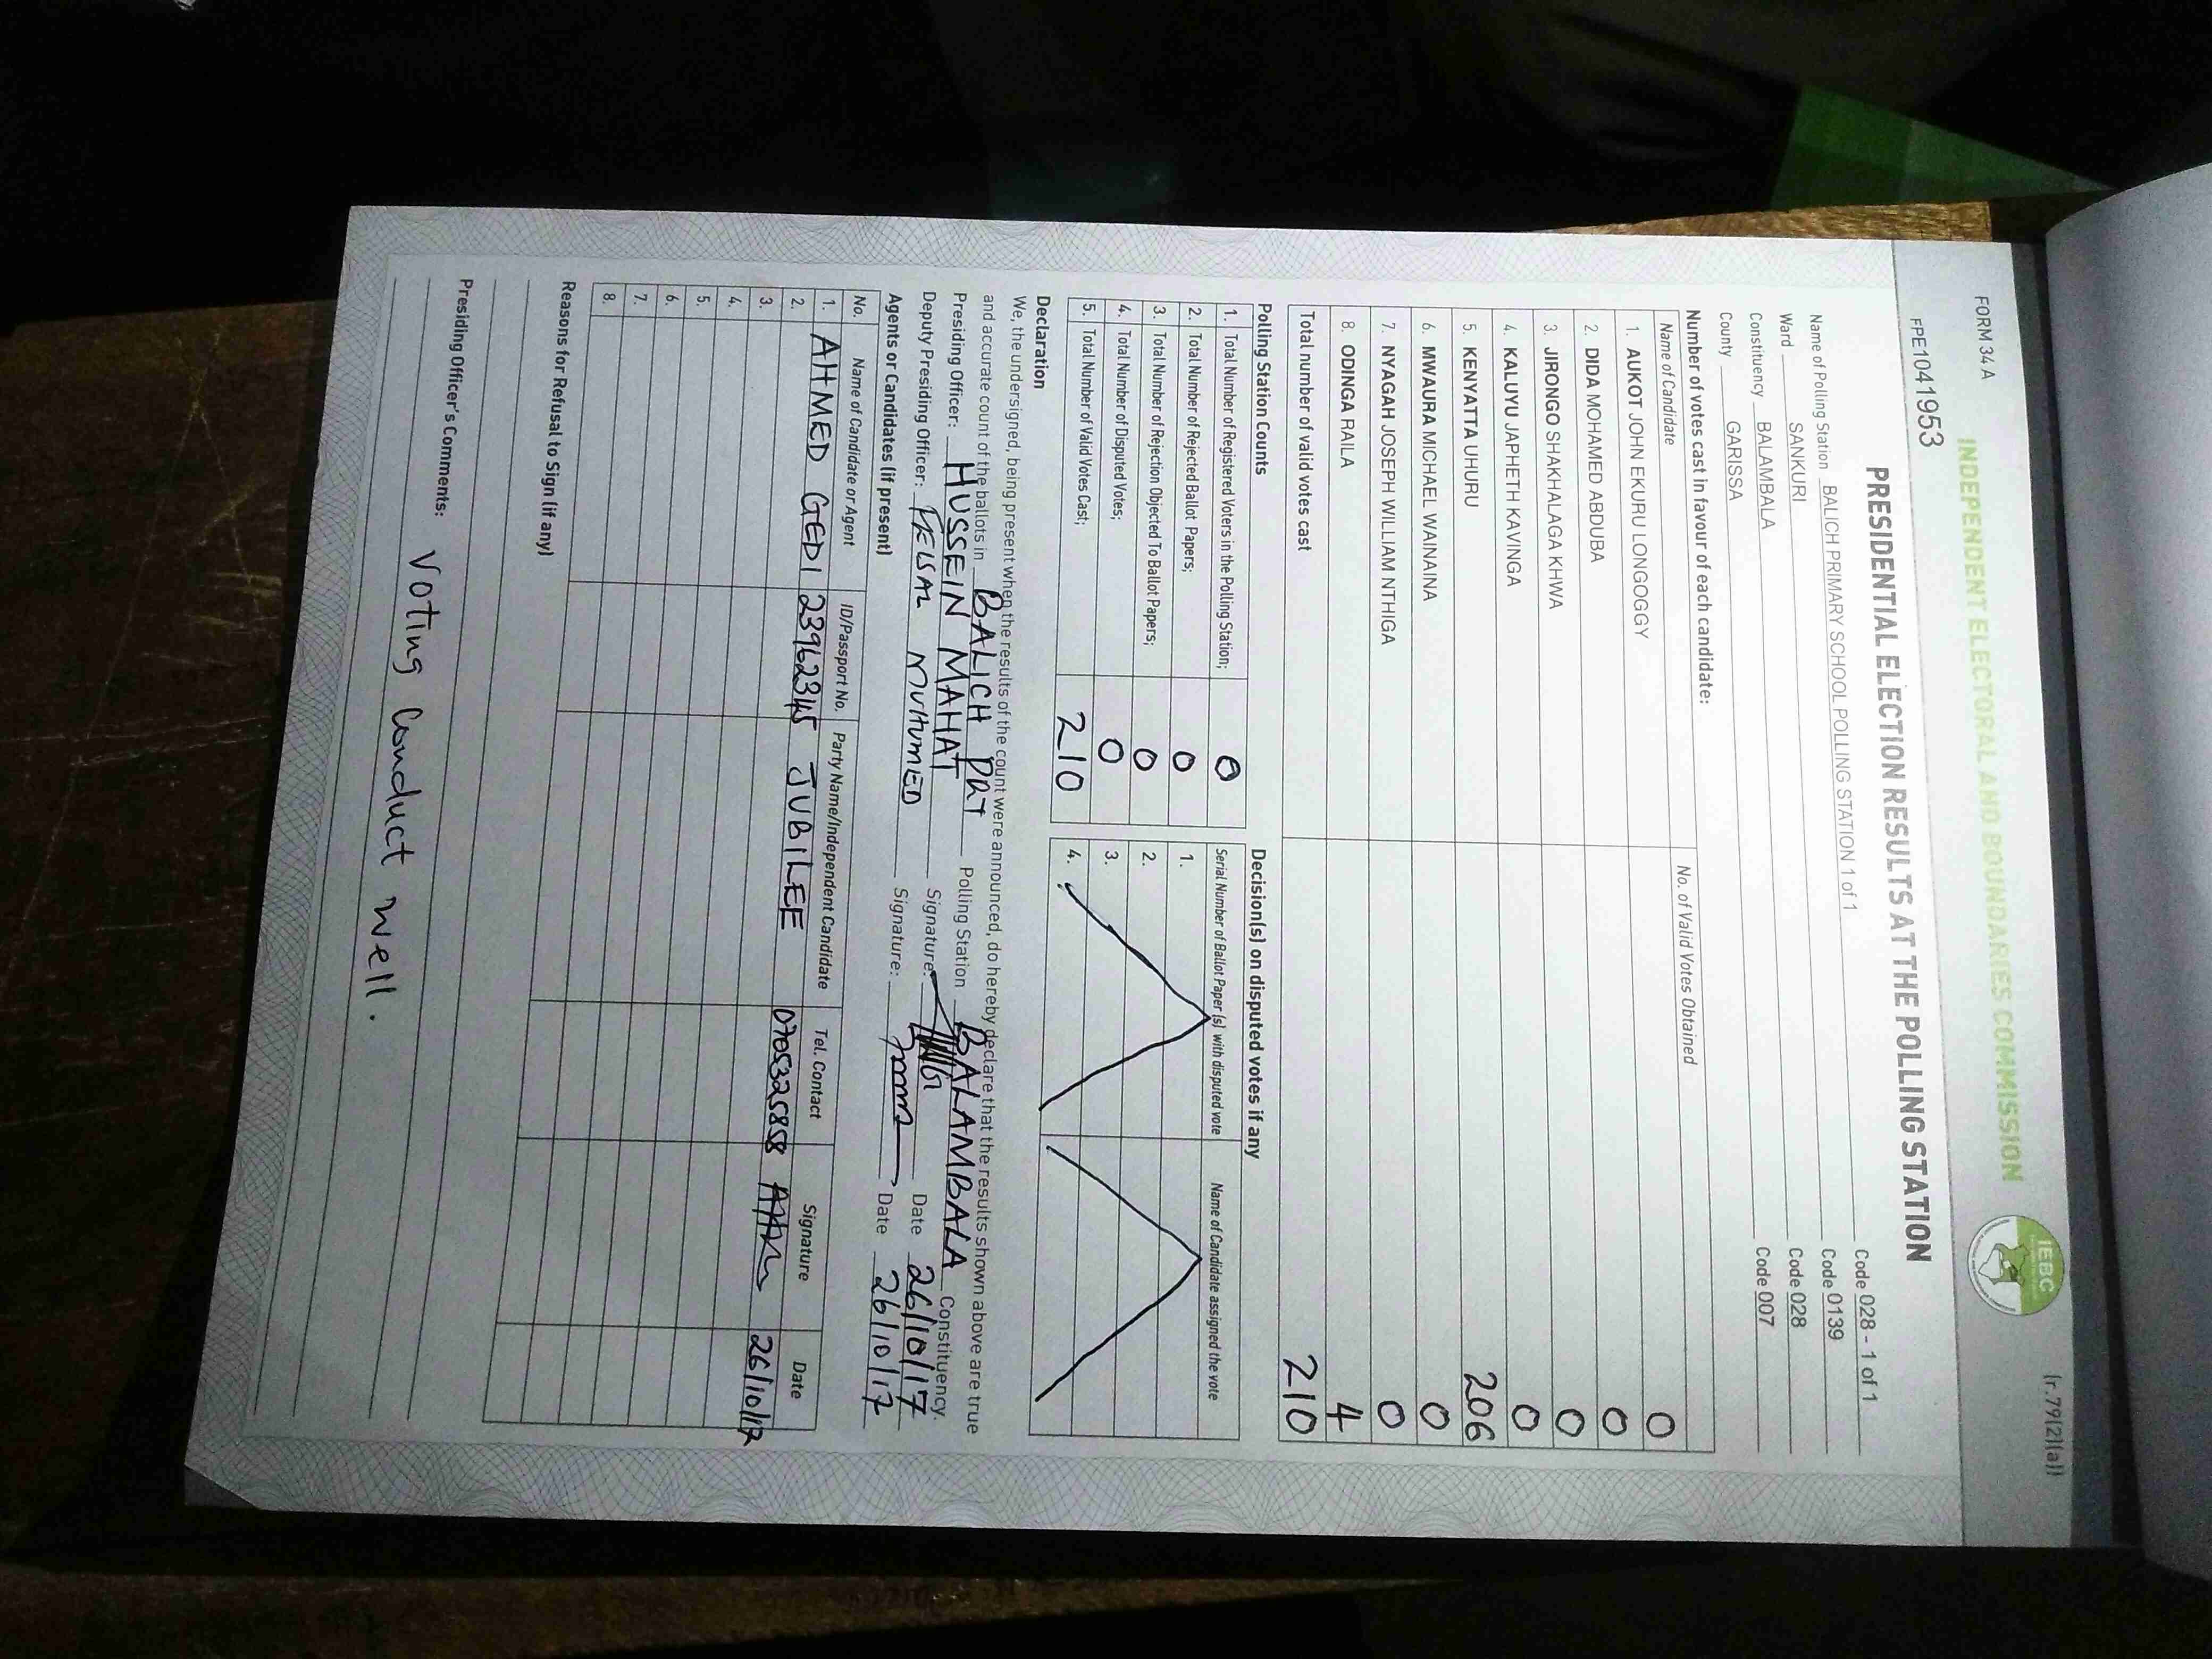 FORM 34 A
(r.79(2)(a))
INDEPENDENT ELECTORAL AND BOUNDARIES COMMISSION
IEBC
FPE1041953
PRESIDENTIAL ELECTION RESULTS AT THE POLLING STATION
Name of Polling Station BALICH PRIMARY SCHOOL POLLING STATION 1 of 1 Code 028 - 1 of 1
Ward SANKURI Code 0139
Constituency BALAMBALA Code 028
County GARISSA Code 007
Number of votes cast in favour of each candidate:
Name of Candidate No. of Valid Votes Obtained
1. AUKOT JOHN EKURU LONGOGGY 0
2. DIDA MOHAMED ABDUBA 0
3. JIRONGO SHAKHALAGA KHWA 0
4. KALUYU JAPHETH KAVINGA 0
5. KENYATTA UHURU 206
6. MWAURA MICHAEL WAINAINA 0
7. NYAGAH JOSEPH WILLIAM NTHIGA 0
8. ODINGA RAILA 4
Total number of valid votes cast 210
Polling Station Counts
1. Total Number of Registered Voters in the Polling Station; 0
2. Total Number of Rejected Ballot Papers; 0
3. Total Number of Rejection Objected To Ballot Papers; 0
4. Total Number of Disputed Votes; 0
5. Total Number of Valid Votes Cast; 210
Decision(s) on disputed votes if any
Serial Number of Ballot Paper (s) with disputed vote Name of Candidate assigned the vote
1.
2.
3.
4.
Declaration
We, the undersigned, being present when the results of the count were announced, do hereby declare that the results shown above are true
and accurate count of the ballots in BALICH PRY Polling Station BALAMBALA Constituency.
Presiding Officer: HUSSEIN MAHAT Signature: Date 26/10/17
Deputy Presiding Officer: Signature: Date 26/10/17
Agents or Candidates (if present)
No. Name of Candidate or Agent ID/Passport No. Party Name/Independent Candidate Tel. Contact Signature Date
1. AHMED GEDI JUBILEE 0705325858 26/10/17
2.
3.
4.
5.
6.
7.
8.
Reasons for Refusal to Sign (if any)
Presiding Officer's Comments:
Voting Conduct well.